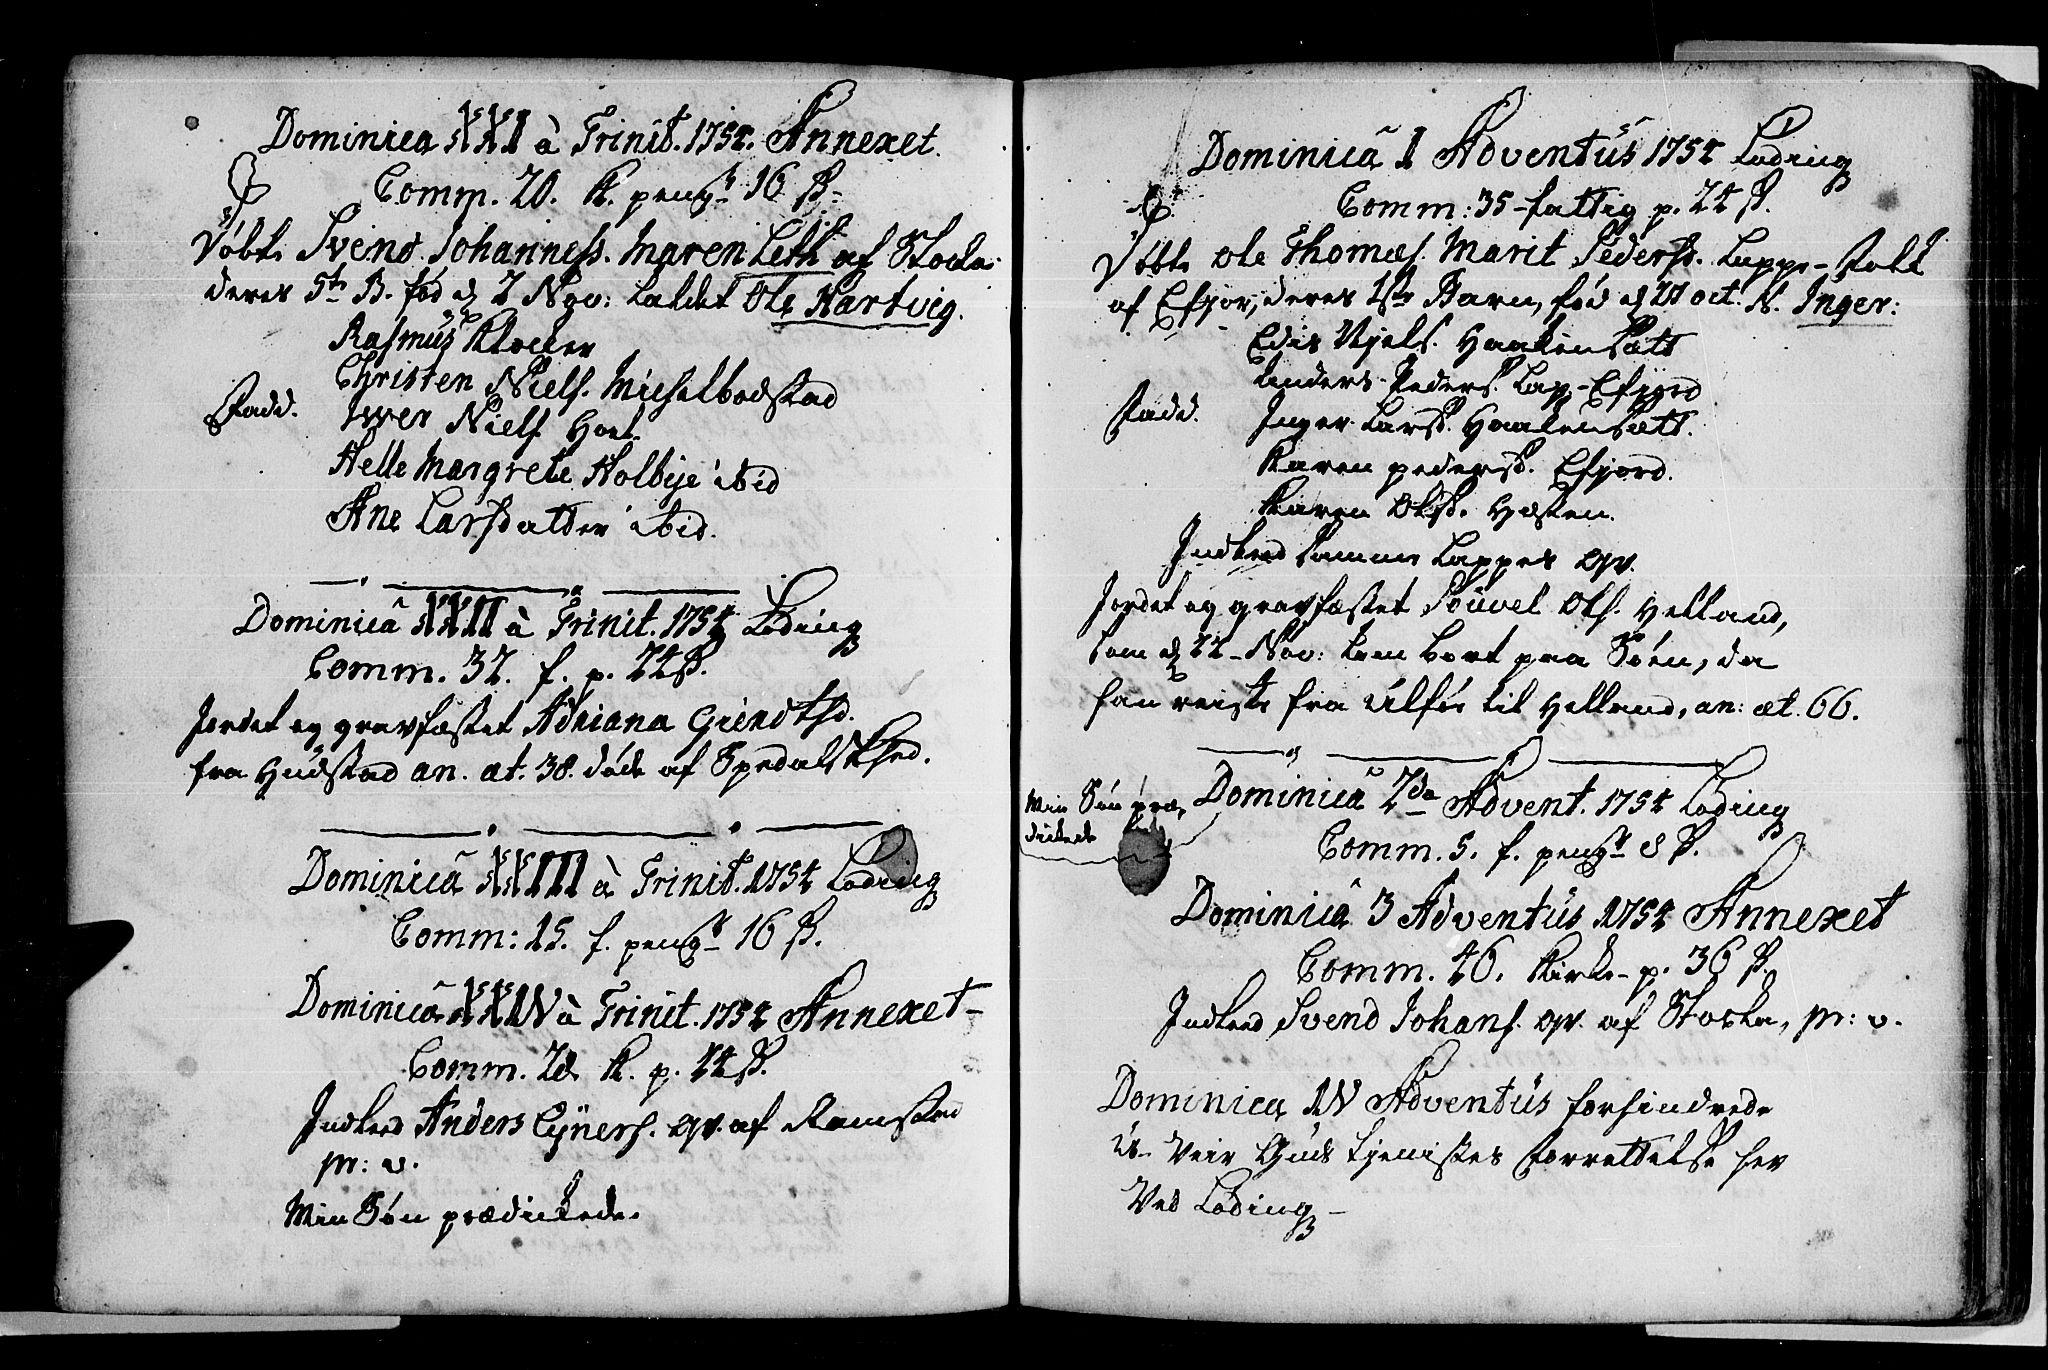 Dominica XXI à Trinit. 1754. Annexet.
Comm. 20. K. peng. 16 ß.
Døbt Svend Johanness. Maren Leth af Stocka
deres 5te B. fød d 2 Nov: kaldet Ole Hartvig.
Rasmus Klocker
Christen Niels. Michelbodstad
Fadd. Iver Niels Hoel.
Helle Margrete Holbye ibid
Ane Larsdatter ibid.
Dominicâ XXII à Trinit. 1754 Lødding
Comm. 32. f. p. 24 ß.
Jordet og gravfæstet Adriana Giendthd.
fra Hudstad an. æt. 38. døde af Spedalskhed.
Dominicâ XXIII à Trinit. 1754 Løding
Comm: 15. f. peng 16 ß.
Dominicâ XXIV à Trinit. 1754 Annexet
Comm. 28 K. p. 24 ß.
Indleed Anders Eyners. qv. af Ramstad
pr: v.
Min Søn prædickede.
Dominicâ 1 Adventûs 1754 Løding
Comm: 35 - fattig p. 24 ß.
Døbt Ole Thomæs. Marit Pedersd. Lappe-Folk
af Efjor, deres 1ste Barn, fød d 28 oct. N. Inger:
Edis Njels. Haakensætt
Anders Peders. Lap. Efjord
Fadd. Inger Larsd. Haakensætt.
Karen pedersd. Efjord.
Karen Olsd. Hæsten.
Indleed samme Lappes qv.
Jordet og gravfæstet Pouvel Ols. Helland,
som d 22 Nov: kom bort paa Søen, da
han reiste fra Ulføe til Helland, an: æt. 66.
Min Søn præ,
dickede
Dominicâ 2da Advent. 1754 Løding
Comm. 5. f. peng 8 ß.
Dominicâ 3 Adventûs 1754 Annexet
Comm. 46. Kirke- p. 36 ß
Indleed Svend Johans. qv. af Stocka, pr: v.
Dominica IV Adventûs forhindrede
U- Veir Guds tjenistes Forrettelse her
Ved Løding -